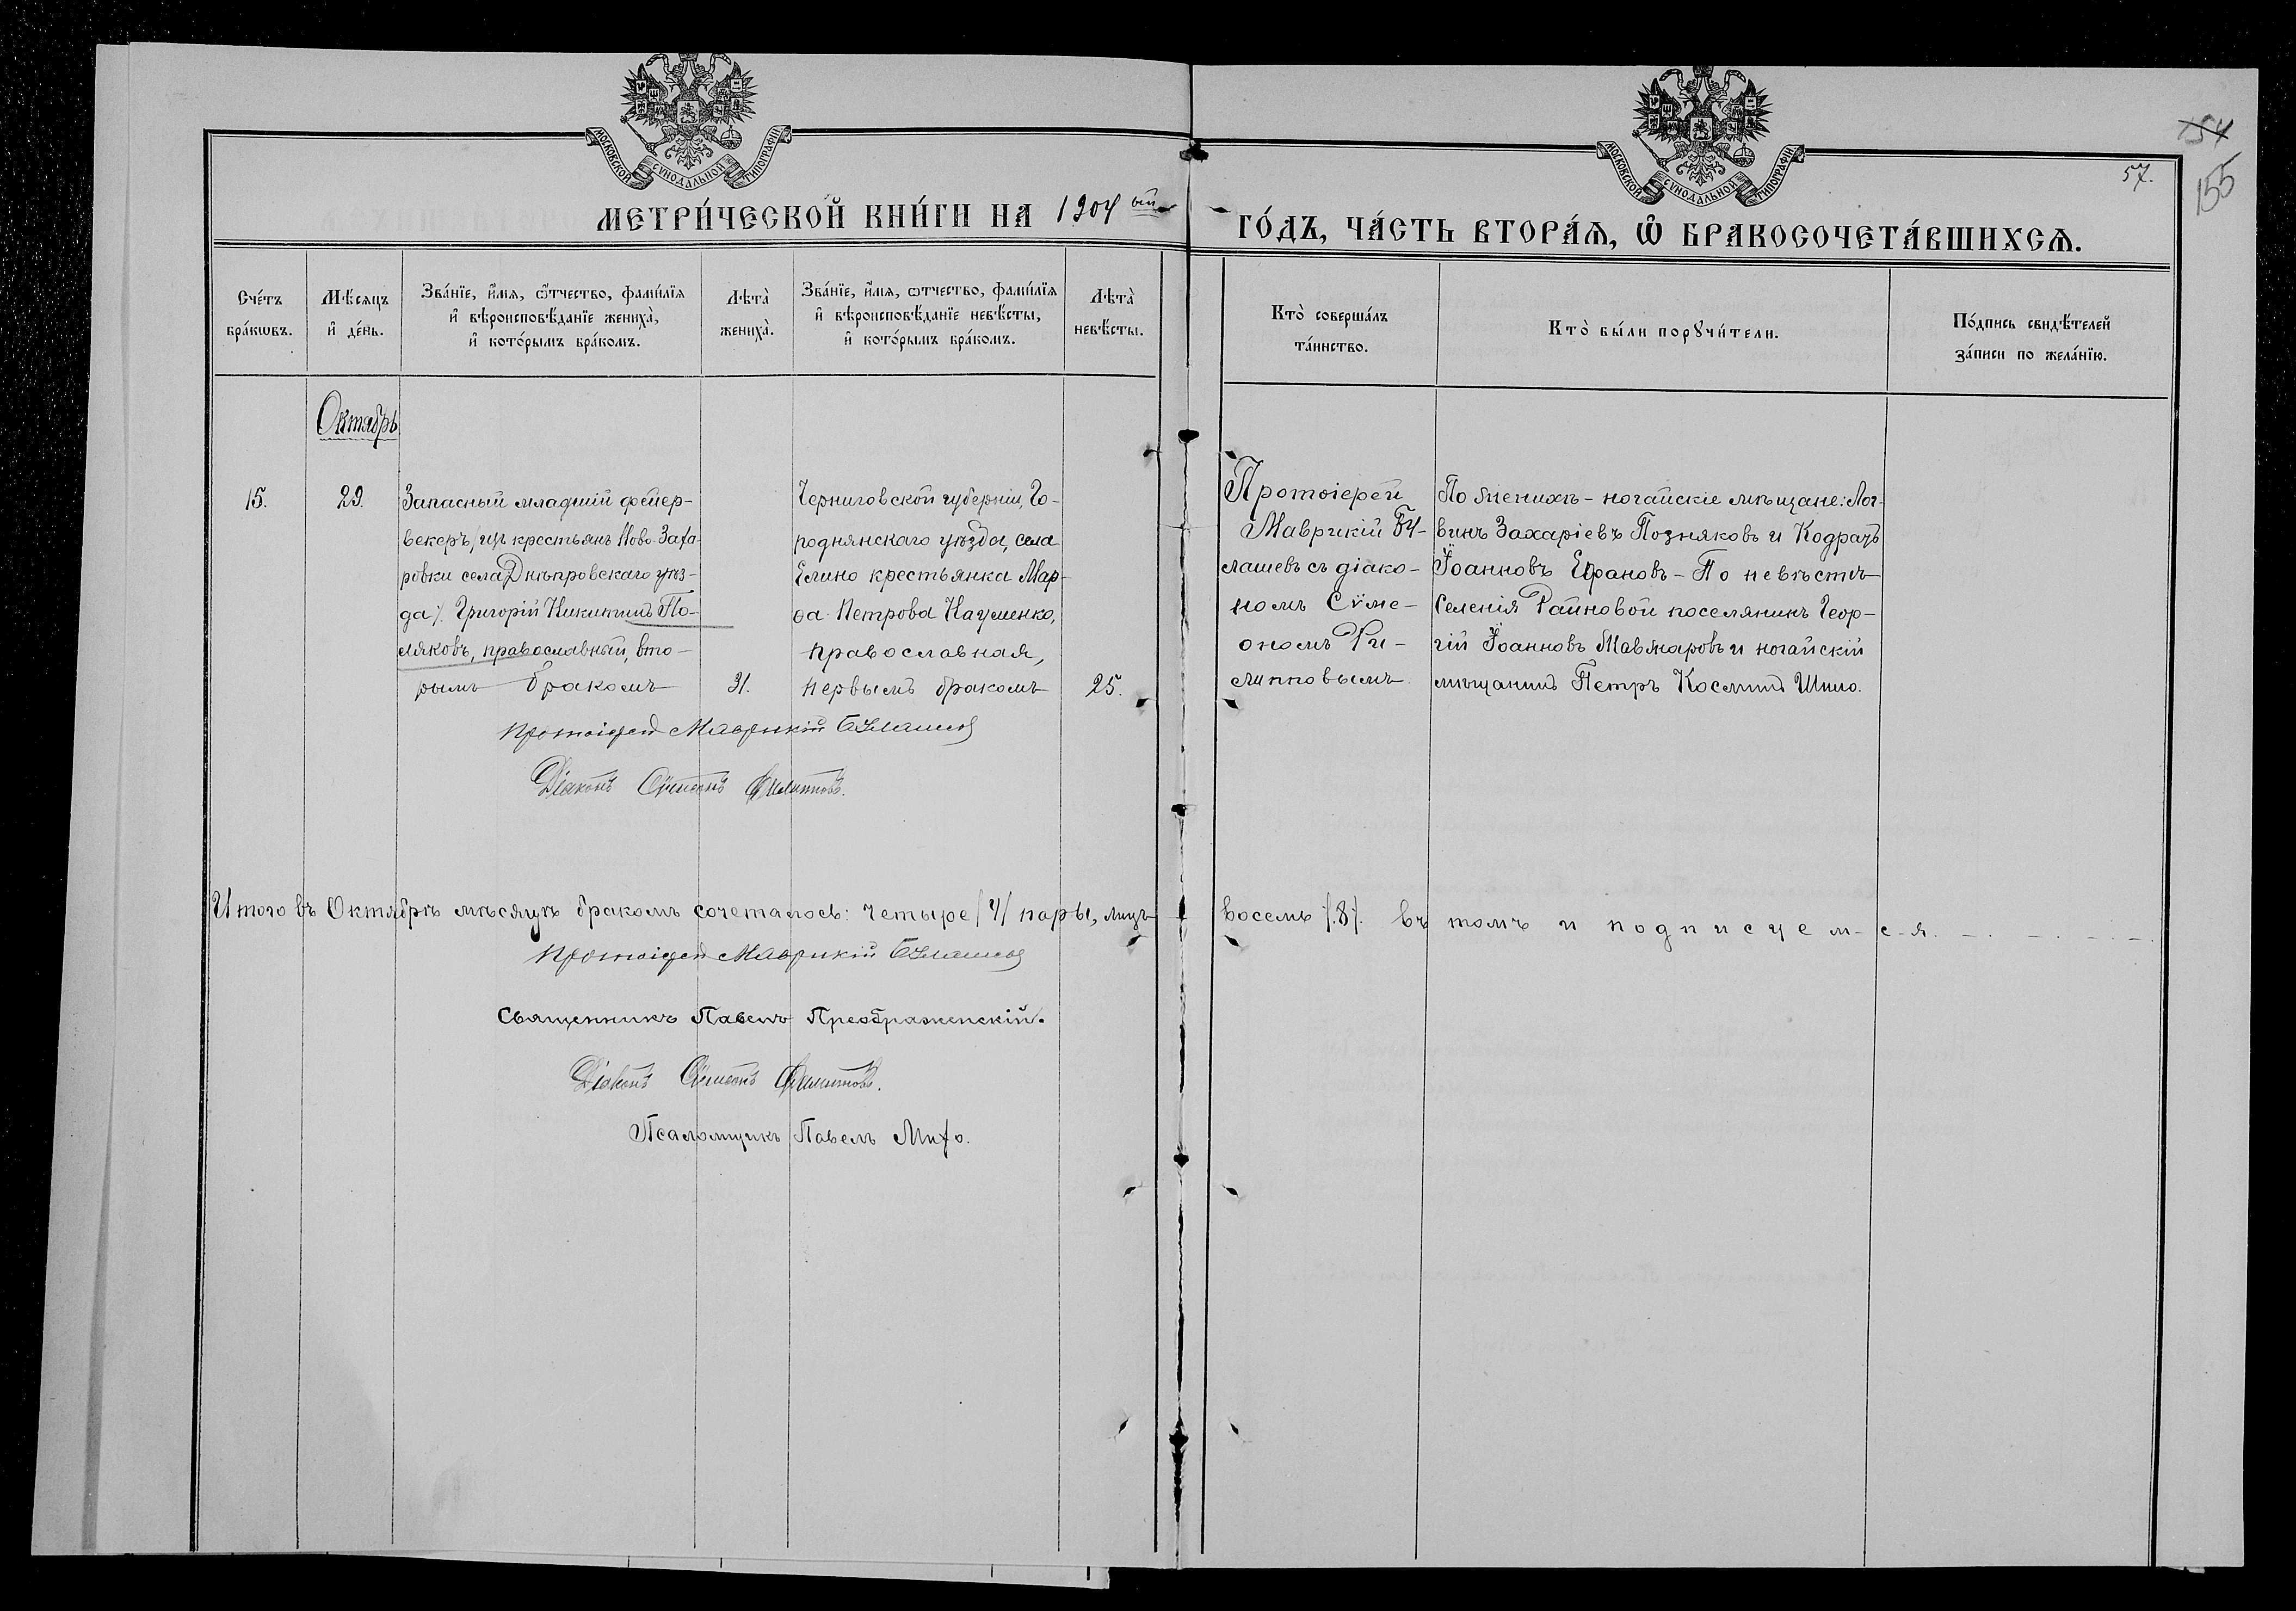 МОСКОВСКОЙ СѴНОДАЛЬНОЙ ТИПОГРАФІИ
МОСКОВСКОЙ СѴНОДАЛЬНОЙ ТИПОГРАФІИ
154
57.
155
МЕТРИ́ЧЕСКОЙ КНИ́ГИ НА 1904 ый
ГО́ДЪ, ЧА́СТЬ ВТОРА́Ѧ, Ѽ БРАКОСОЧЕТА́ВШИХСѦ.
Сче́тъ
бра́кѡвъ.
Мѣ́сяцъ
и҆ де́нь.
Зва́нїе, и҆́мѧ, ѻ҆́тчество, фами́лїѧ
и҆ вѣроисповѣ́данїе жениха̀,
и҆ кото́рымъ бра́комъ.
Лѣта̀
жениха̀.
Зва́нїе, и҆́мѧ, ѻтчество, фами́лїѧ
и҆ вѣроисповѣ́данїе невѣ́сты,
и҆ кото́рымъ бра́комъ.
Лѣта̀
невѣ́сты.
Кто̀ соверша́лъ
та́инство.
Кто̀ бы́ли порꙋчи́тели.
По́дпись свидѣ́телей
за́писи по жела́нїю.
Октябрь
15.
29.
Запасный младшій фейер-
векеръ, изъ крестьянъ Ново-Заха-
ровки села Днѣпровскаго уѣз-
да/. Григорій Никитинъ По-
ляковъ, православный, вто-
рымъ бракомъ
31.
Черниговской губерніи, Го-
роднянскаго уѣзда, села
Елино крестьянка Мар-
ѳа Петрова Науменко,
православная,
первымъ бракомъ
25.
Протоіерей
Маврикій Бу-
лашевъ съ діако-
номъ Сѵме-
ономъ Фи-
липповымъ.
По женихѣ - ногайскіе мѣщане: Лог-
винъ Захаріевъ Позняковъ и Кодратъ
Іоанновъ Ефановъ - По невѣстѣ
селенія Райновой поселянинъ Геор-
гій Іоанновъ Мавжаровъ и ногайскій
мѣщанинъ Петръ Косминъ Шило.
Протоіерей Маврикій Булашевъ
Діаконъ Сѵмеонъ Филипповъ.
Итого въ Октябрѣ мѣсяцѣ бракомъ сочеталось: четыре /4/ пары, лицъ восемь /.8/. въ томъ и подписуем-с-я. - . - . - . - .
Протоіерей Маврикій Булашевъ
Священникъ Павелъ Преображенскій.
Діаконъ Сѵмеонъ Филипповъ.
Псаломщикъ Павелъ Михо.